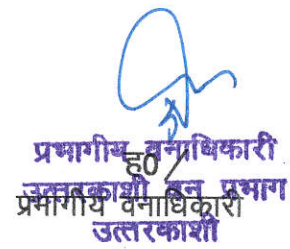 प्रभागीय वनाधिकारी
ह0/
उत्तरकाशी वन प्रभाग
प्रभागीय वनाधिकारी
उत्तरकाशी